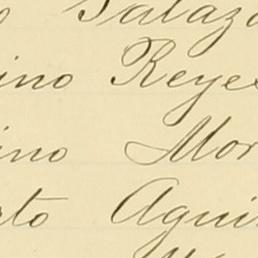 o Salaza
ino Reyes
ino Mor
rto Agui